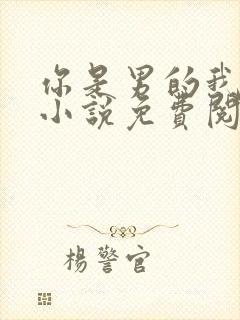 你是男的我
小說免費閱
楊警官